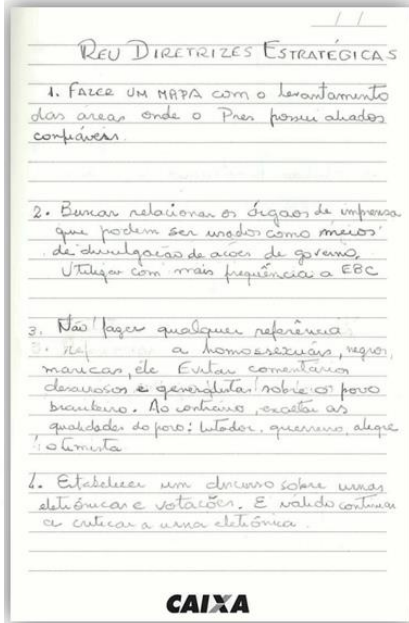 / /
REU DIRETRIZES ESTRATÉGICAS
1. FAZER UM MAPA com o levantamento
das áreas onde o Pres possui aliados
confiáveis.
2. Buscar relacionar os órgãos de imprensa
que podem ser usados como meios
de divulgação de ações de governo.
Utilizar com mais frequência a EBC
3. Não fazer qualquer referência
a homossexuais, negros,
maricas, etc Evitar comentários
desairosos e generalistas sobre o povo
brasileiro. Ao contrário, exaltar as
qualidades do povo: lutador, guerreiro, alegre
otimista
4. Estabelecer um discurso sobre urnas
eletrônicas e votações. É válido continuar
a criticar a urna eletrônica.
CAIXA